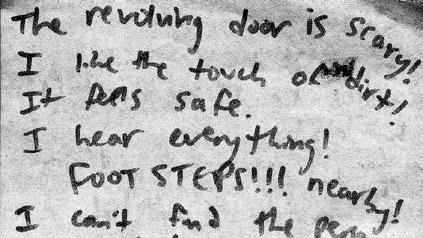 The revolving door is scary!
I like the touch of dirt!
It feels safe.
I hear everything!
FOOTSTEPS!!! nearby!
I can't find the